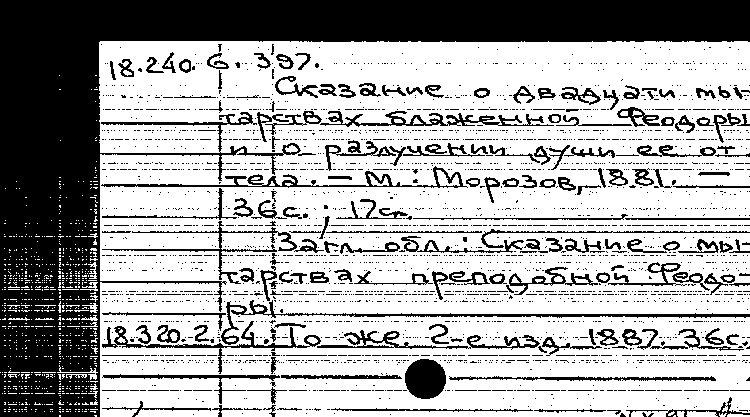 18.240.6.397.
Сказание о двадцати мы-
тарствах блаженной Феодоры
и о разлучении души ее от
тела. — М.: Морозов, 1881. —
36с.; 17см.
Загл. обл.: Сказание о мы-
тарствах преподобной Феодо-
ры.
18.320.2.64. То же. 2-е изд. 1887. 36с.